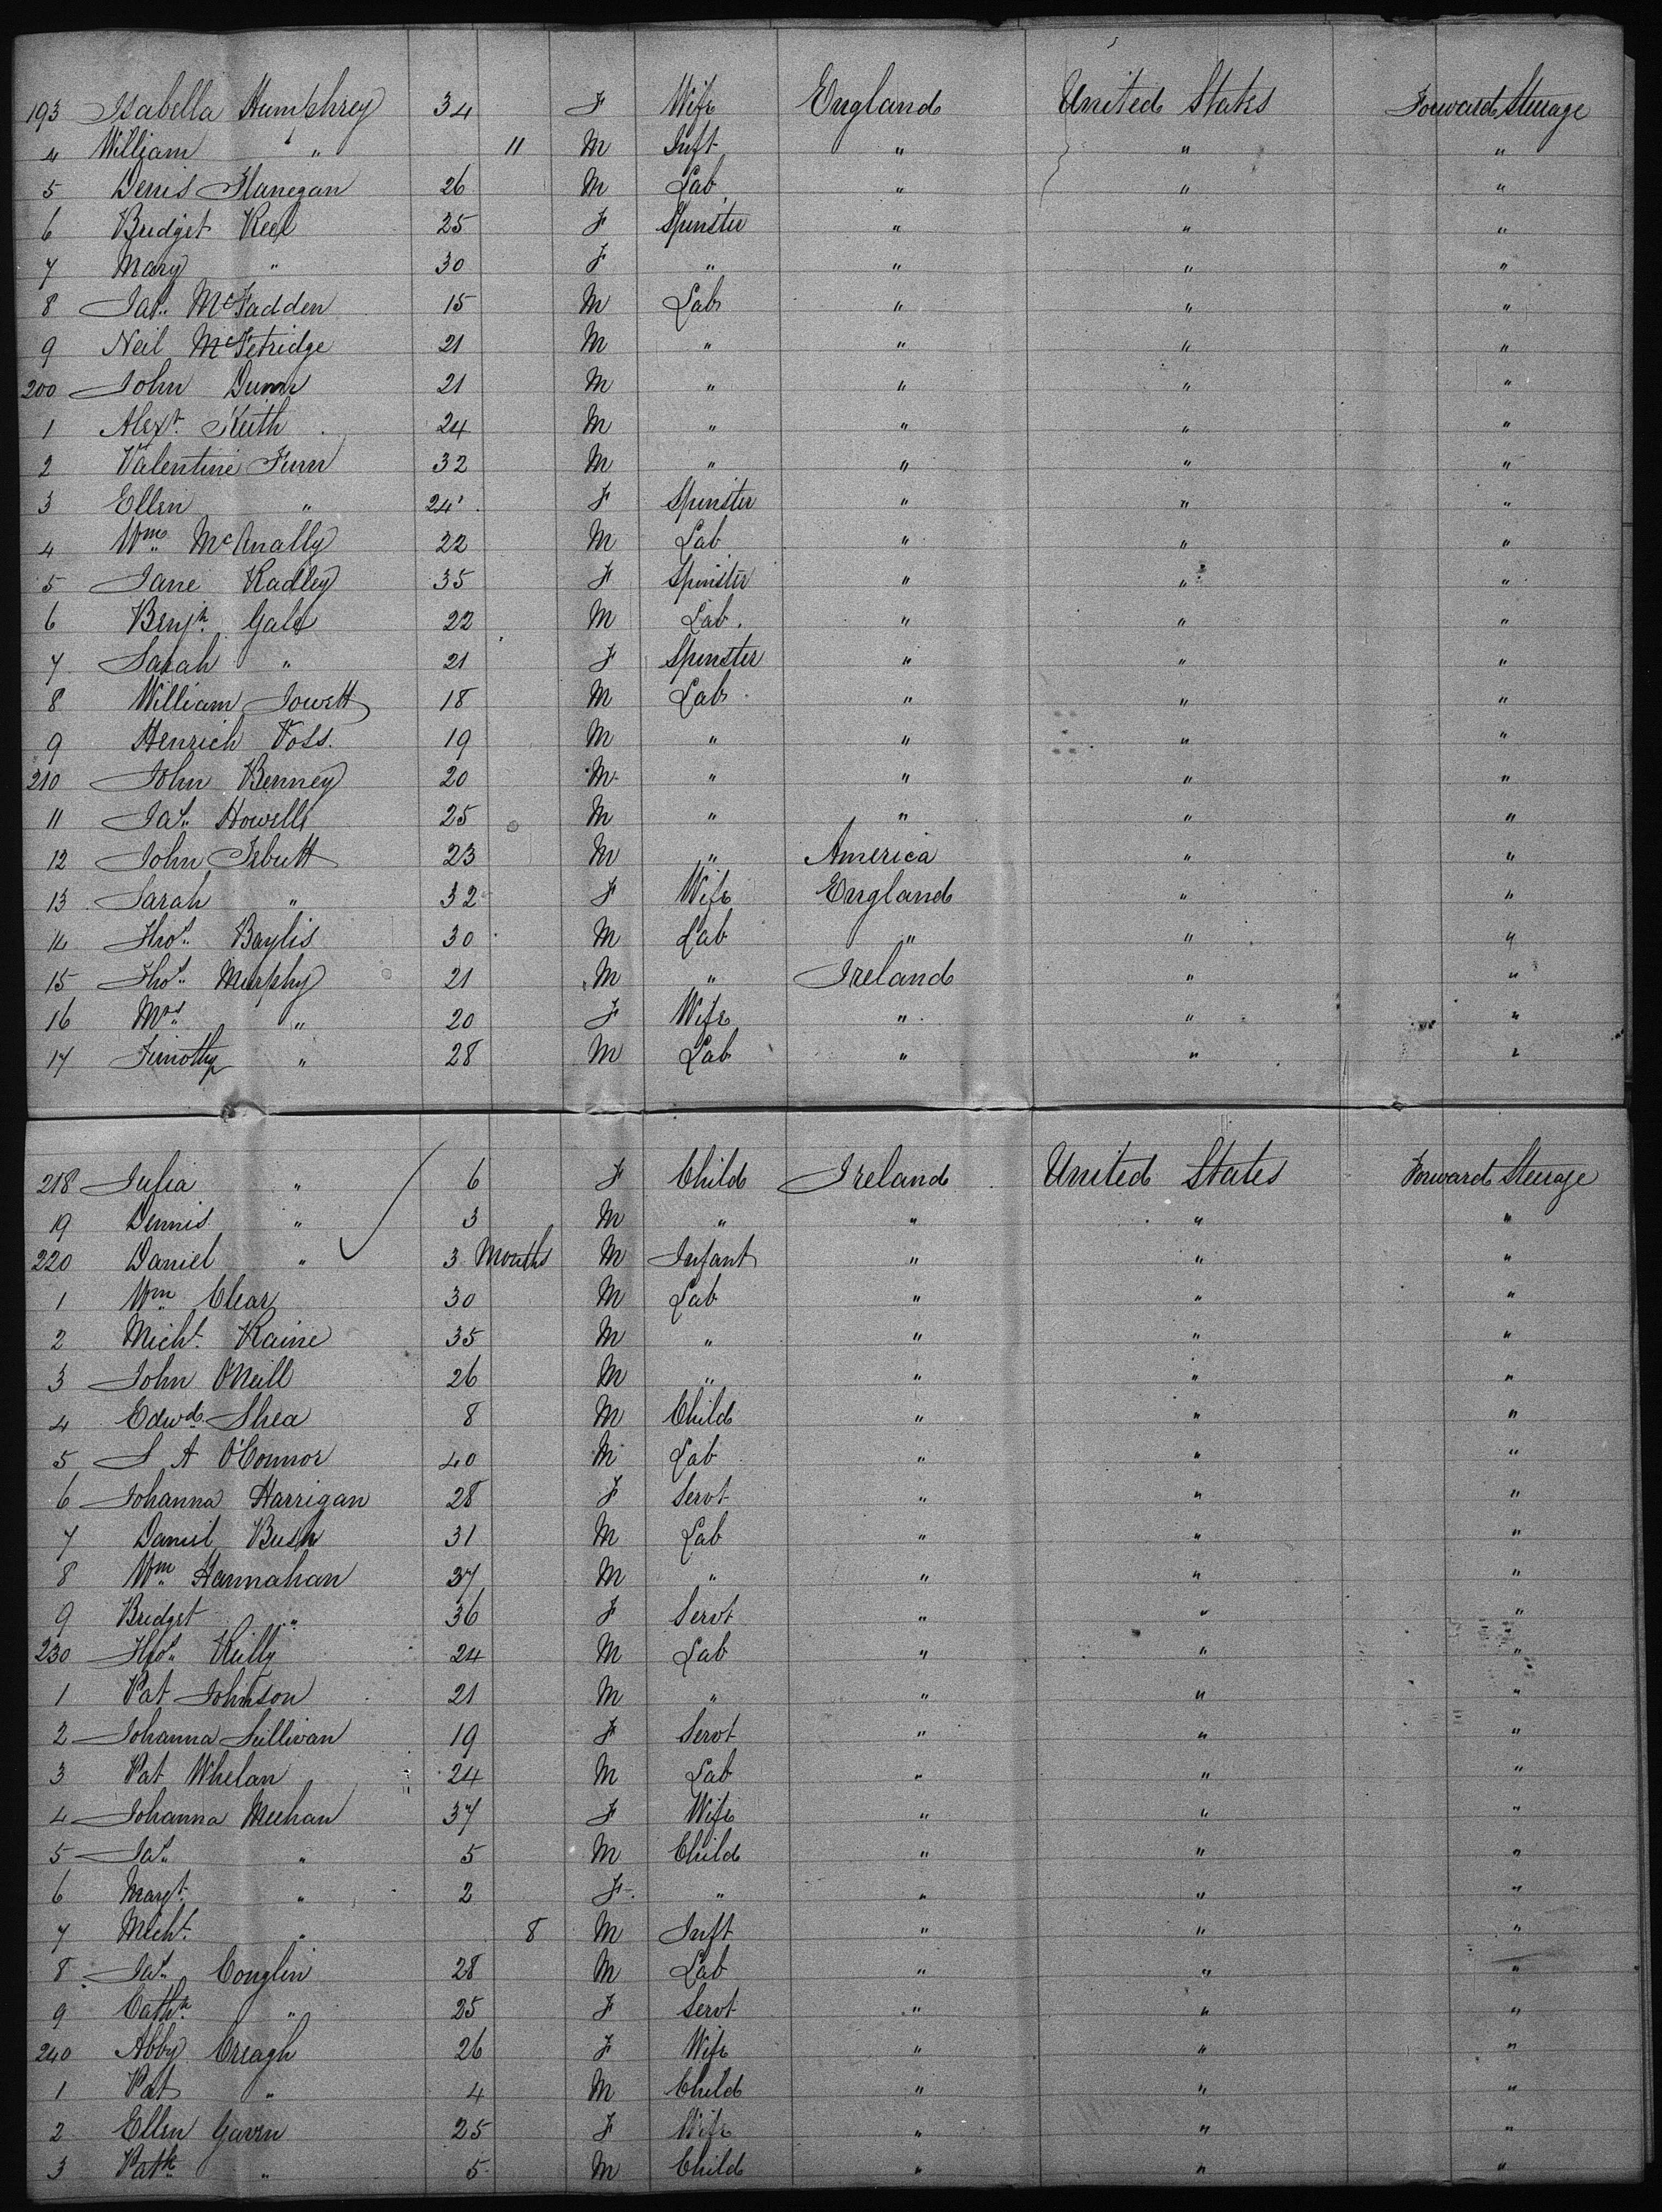 193 Isabella Humphrey 34 F Wife England United States Forward Steerage
4 William " 11 M Inft " " "
5 Denis Flanegan 26 M Lab " " "
6 Bridget 25 F Spinster " " "
7 Mary " 30 F " " " "
8 Jas. McFadden 15 M Lab " " "
9 Neil McFetridge 21 M " " " "
200 John Dunn 21 M " " " "
1 Alexr. Keith 24 M " " " "
2 Valentine Finn 32 M " " " "
3 Ellen " 24 F Spinster " " "
4 Wm. McAnally 22 M Lab " " "
5 Jane Radley 35 F Spinster " " "
6 Benjn. Gale 22 M Lab. " " "
7 Sarah " 21 F Spinster " " "
8 William Jowett 18 M Lab " " "
9 Henrich Voss. 19 M " " " "
210 John Benney 20 M " " " "
11 Jas. Howells 25 M " " " "
12 John 23 M " America " "
13 Sarah " 32 F Wife England " "
14 Thos. Baylis 30 M Lab " " "
15 Thos. Murphy 21 M " Ireland " "
16 Mrs. " 20 F Wife " " "
17 Timothy " 28 M Lab " " "
218 Julia " 6 F Child Ireland United States Forward Steerage
19 Dennis " 3 M " " " "
220 Daniel " 3 Months M Infant " " "
1 Wm Clear 30 M Lab " " "
2 Michl. Kaine 35 M " " " "
3 John O'Neill 26 M " " " "
4 Edwd. Shea 8 M Child " " "
5 S A O'Connor 40 M Lab " " "
6 Johanna Harrigan 28 F Servt " " "
7 Daniel Bush 31 M Lab " " "
8 Wm. Hannahan 37 M " " " "
9 Bridget " 36 F Servt " " "
230 Thos. Reilly 24 M Lab " " "
1 Pat Johnson 21 M " " " "
2 Johanna Sullivan 19 F Servt " " "
3 Pat Whelan 24 M Lab " " "
4 Johanna Meehan 37 F Wife " " "
5 Jas. " 5 M Child " " "
6 Margt. " 2 F " " " "
7 Michl. " 8 M Inft " " "
8 Jas. Conglin 28 M Lab " " "
9 Cathn. " 25 F Servt " " "
240 Abby Creagh 26 F Wife " " "
1 Pat " 4 M Child " " "
2 Ellen Gaven 25 F Wife " " "
3 Patk. " 5 M Child " " "